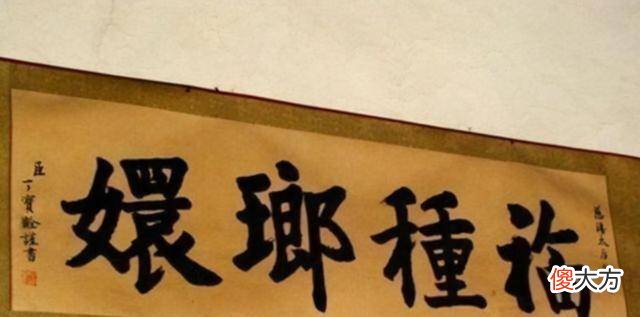 慈禧太后
福種瑯嬛
臣丁寶銓謹書
傻大方